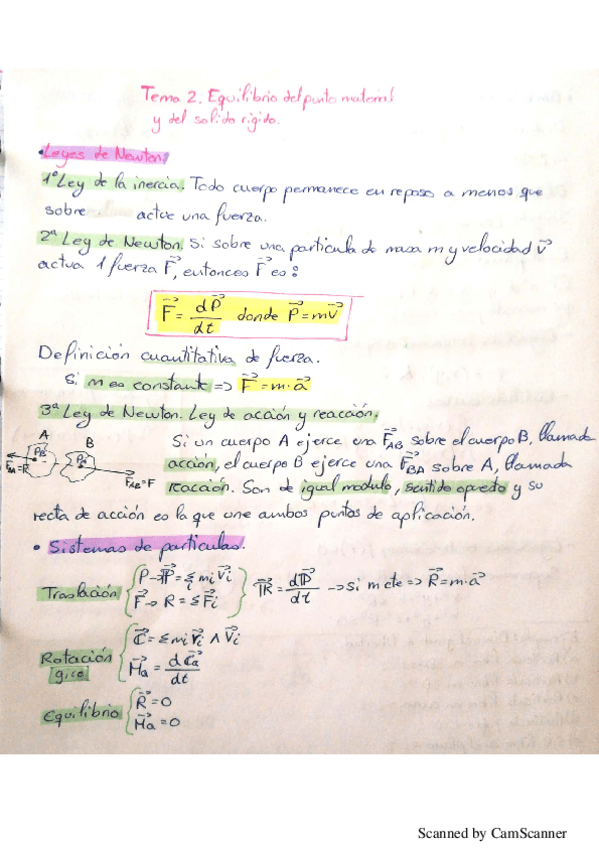 Tema 2. Equilibrio del punto material
y del solido rigido.
• Leyes de Newton.
1ª Ley de la inercia. Todo cuerpo permanece en reposo a menos que
sobre actue una fuerza.
2ª Ley de Newton. Si sobre una particula de masa m y velocidad v⃗
actua 1 fuerza F⃗, entonces F⃗ es:
F⃗ = dP⃗/dt donde P⃗ = mv⃗
Definición cuantitativa de fuerza.
Si m es constante => F⃗ = m·a⃗
3ª Ley de Newton. Ley de acción y reacción.
A B
Si un cuerpo A ejerce una F⃗AB sobre el cuerpo B, llamada
acción, el cuerpo B ejerce una F⃗BA sobre A, llamada
FBA=R FAB=F
reacción. Son de igual modulo, sentido opuesto y su
recta de acción es la que une ambos puntos de aplicación.
• Sistemas de particulas.
Traslación { P→P⃗ = Σi mi v⃗i
F⃗ → R = Σ F⃗i } R⃗ = dP⃗/dt → si m cte => R⃗ = m·a⃗
Rotación
giro { C⃗ = Σ mi r⃗i ∧ v⃗i
M⃗a = dC⃗a/dt
Equilibrio { R⃗ = 0
M⃗a = 0
Scanned by CamScanner